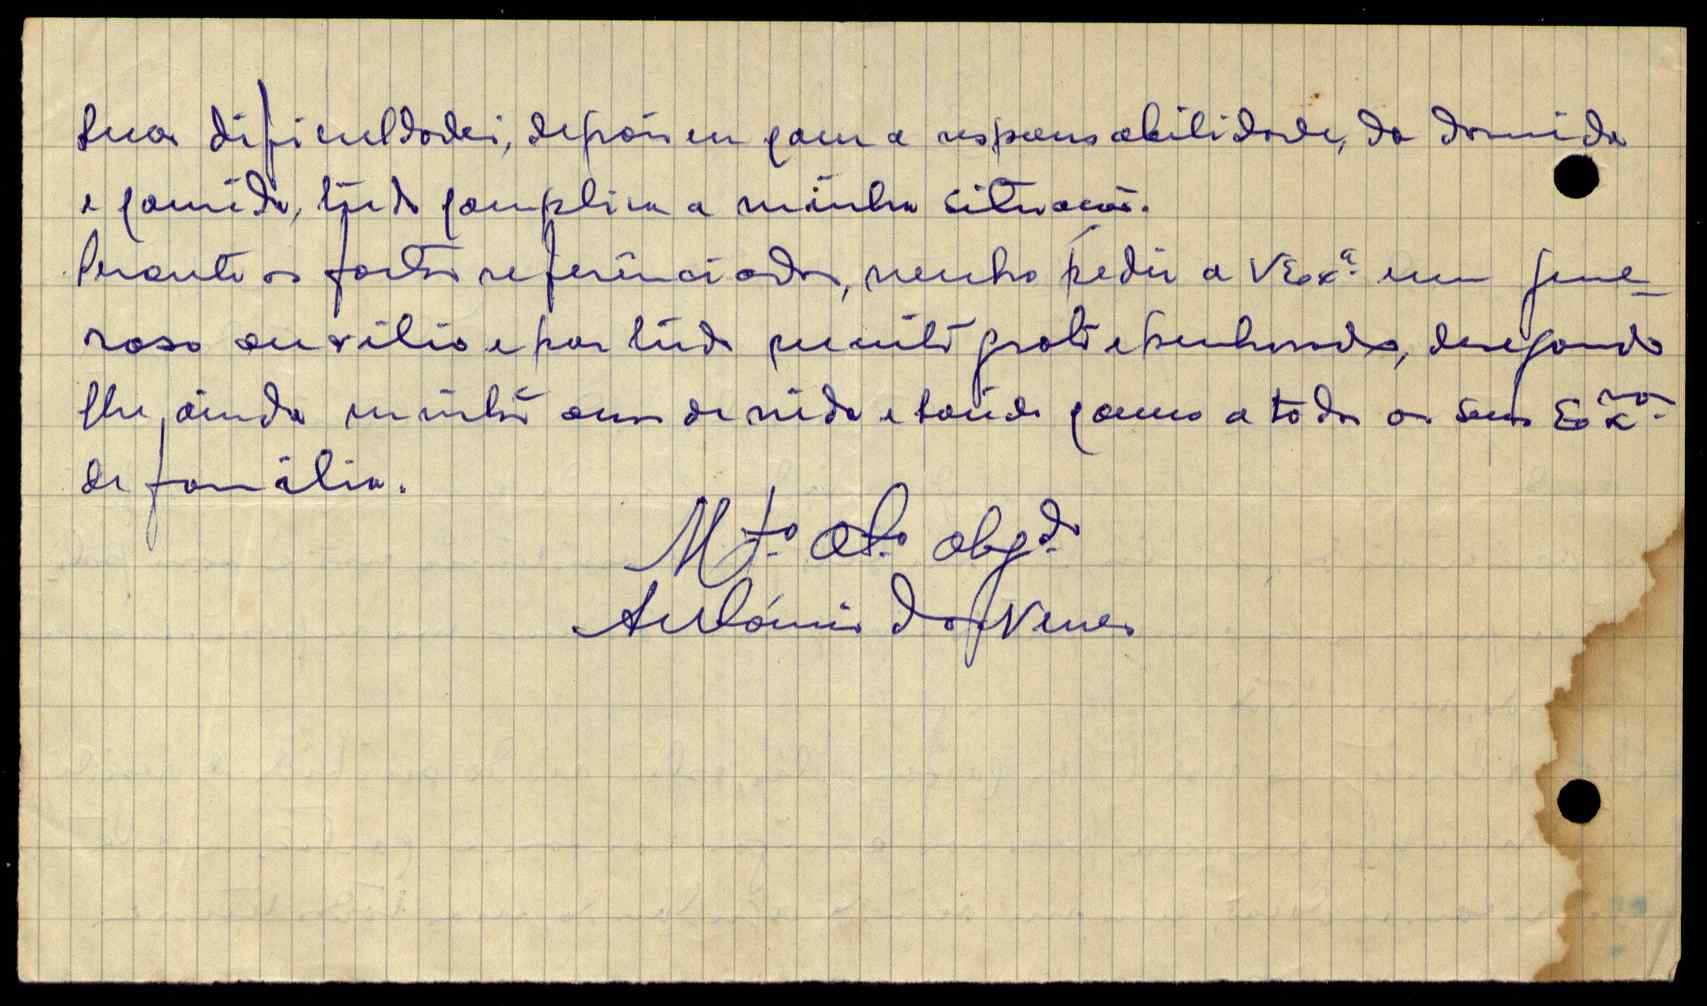 suas dificuldades, depois eu com a responsabilidade, da dormida
e comida, túdo complica a minha situacão.
Perante os factos referênciados, venho pedir a VExª. um gene-
roso auxilio e por túdo muito grato e penhorado, desejando
lhe, ainda muitos anos de vida e saúde como a todos os seus Exmos.
de familia.
Mto. Ato. obgdo.
António das Neves